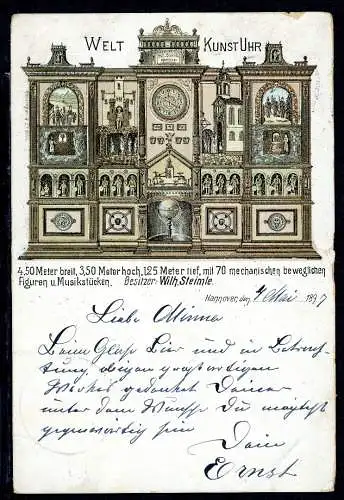 WELT KUNSTUHR
4,50 Meter breit, 3,50 Meter hoch, 1,25 Meter tief, mit 70 mechanischen beweglichen
Figuren u. Musikstücken. Besitzer: Wilh. Steimle.
Hannover, den 4 Mai 1897
Liebe Minna
Beim Glase Bier und in Betrach-
tung obigen großartigen
Werkes gedenket Deiner
unter dem Wunsche Du möchtest
gegenwärtig sein
Dein
Ernst